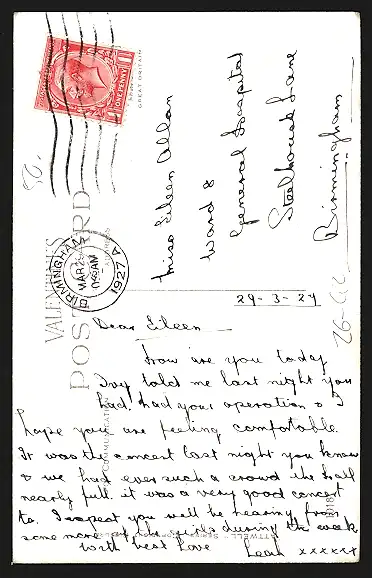 Miss Eileen Allan
Ward 8
General Hospital
Steelhouse Lane
Birmingham
ONE PENNY
GREAT BRITAIN
BIRMINGHAM
MAR 29
AM
1927
VALENTINE'S
POST CARD
29-3-27
Dear Eileen
How are you today
Ivy told me last night you
had, had your operation & I
hope you are feeling comfortable.
It was the concert last night you know
& we had ever such a crowd the hall
nearly full it was a very good concert
to. I expect you will be hearing from
some more of the girls during the week
With best love Leah xxxxxx
COMMUNICATION
ATTWELL